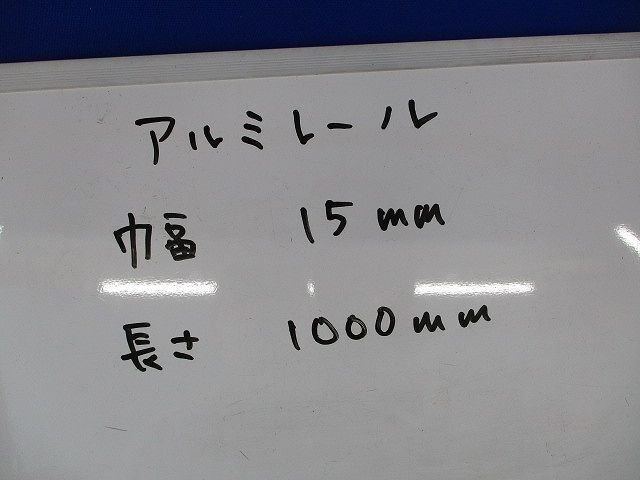 アルミレール
巾幅 15mm
長さ 1000mm